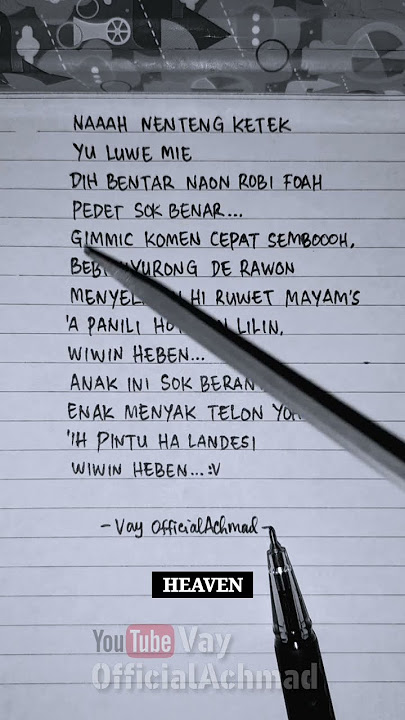 NAAAH NENTENG KETEK
YU LUWE MIE
DIH BENTAR NAON ROBI FOAH
PEDET SOK BENAR...
GIMMIC KOMEN CEPAT SEMBOOOH,
DE RAWON
HI RUWET MAYAM'S
'A PANILI LILIN,
WIWIN HEBEN...
ANAK INI SOK
ENAK MENYAK TELON
'IH PINTU HA LANDESI
WIWIN HEBEN... :V
- Vay OfficialAchmad -
HEAVEN
YouTube Vay
OfficialAchmad